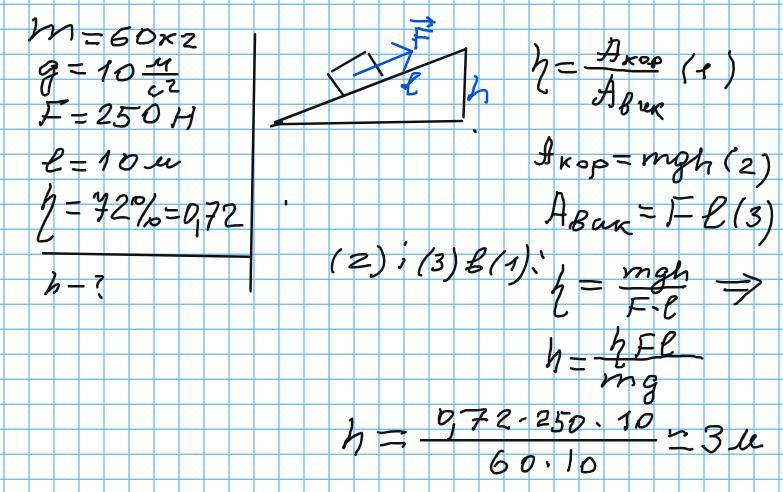 m = 60 кг
g = 10 м/с²
F = 250 Н
ℓ = 10 м
η = 72% = 0,72
h - ?
F
ℓ
h
η = Aкор/Aвик (1)
Aкор = mgh (2)
Aвик = Fℓ (3)
(2) і (3) в (1):
η = mgh/F·ℓ ⇒
h = ηFℓ/mg
h = 0,72·250·10/60·10 = 3 м